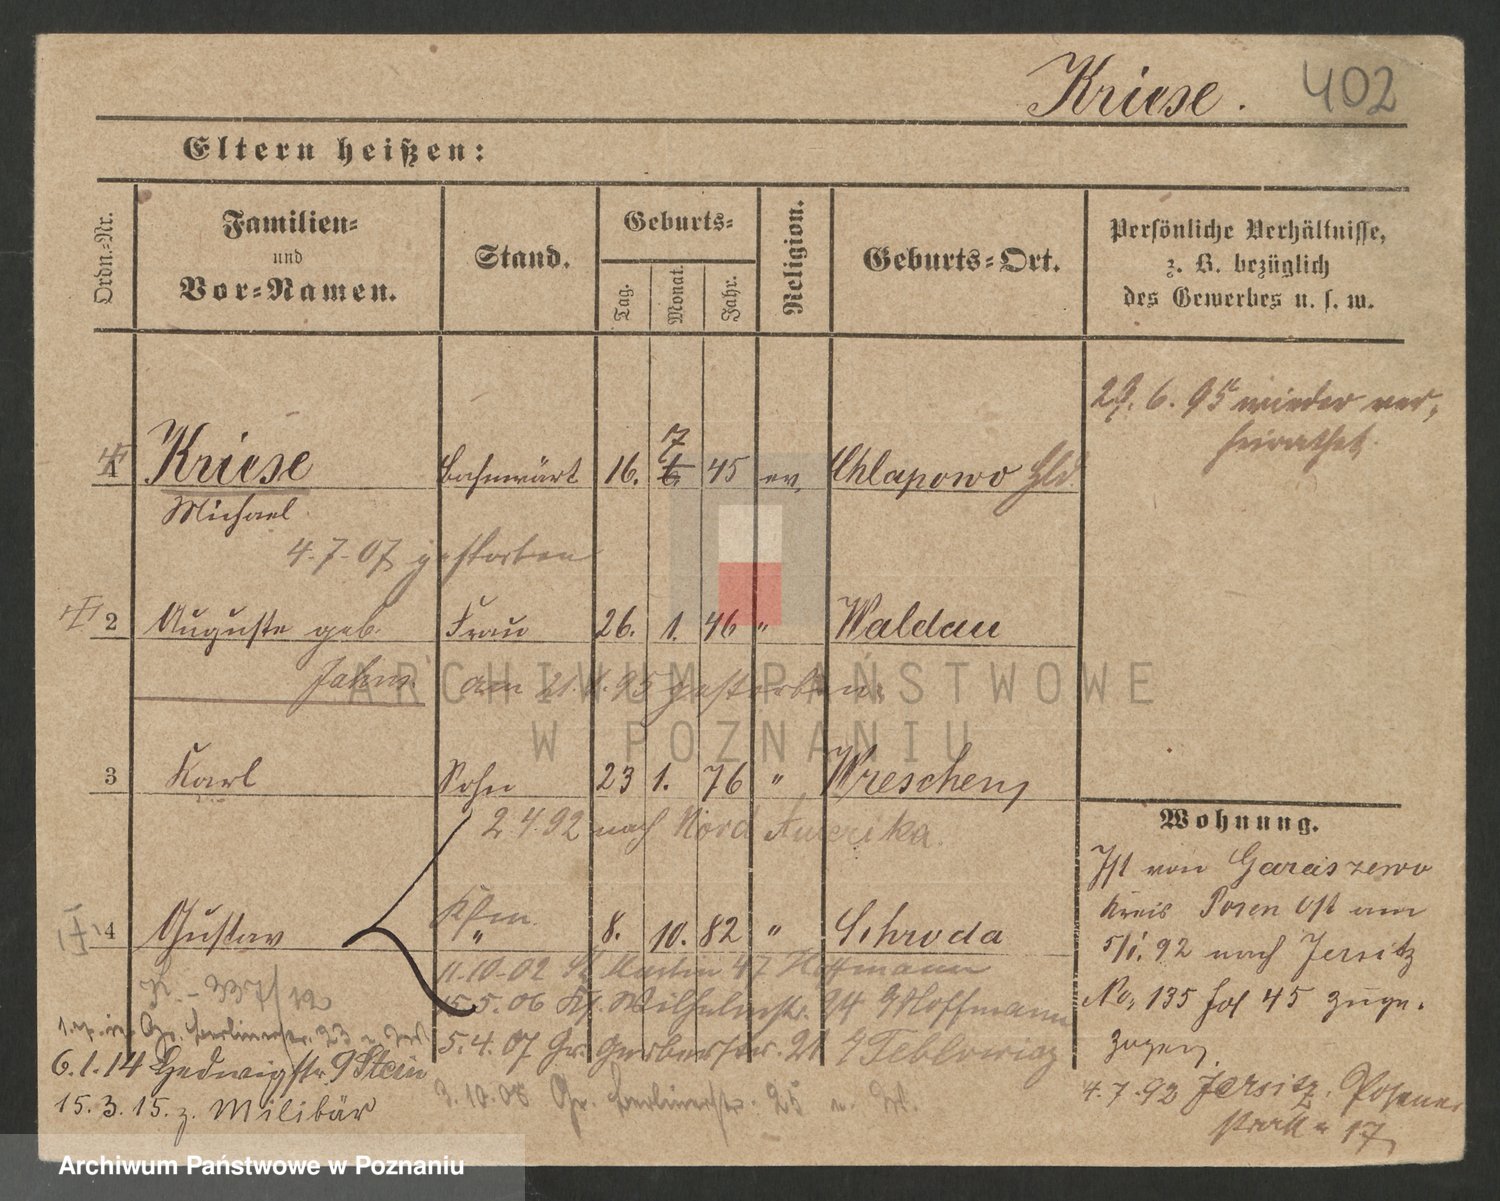 Kriese. 402
Eltern heißen:
Ordn.-Nr.
Familien-
und
Vor-Namen.
Stand.
Geburts-
Tag.
Monat.
Jahr.
Religion.
Geburts-Ort.
Persönliche Verhältnisse,
z. B. bezüglich
des Gewerbes u. s. w.
6. 95 wieder ver,
heirathet.
7
1 Kriese Bahnwärt 16. 6 45 ev. Chlapowo Hld
Michael
4.7.07 gestorben
2 Auguste geb. Frau 26. 1. 46 " Waldau
Jahns am 21. 95 gestorben.
ARCHIWUM PAŃSTWOWE
W POZNANIU
3 Karl Sohn 23 1. 76 " Wreschen,
2.4.92 nach Nord Amerika.
4 Gustav " 8. 10. 82 " Schroda
Kfm.
11.10.02 St. Martin 47 Hoffmann
15.5.06 Wilhelmstr. Hoffmann
5.4.07 Gr. Gerberstr. 21
9.10.08 Gr. Berlinerstr. 25
K. - 337/12
Gr. Berlinerstr. 23
6.1.14 Hedwigstr. 9 Stein
15.3.15. z. Militär
Wohnung.
Ist von Garaszewo
Kreis Posen Ost am
5/1. 92 nach Jersitz
No. 135 45 zuge-
zogen.
4.7.92 Jersitz. Posener
straße 17,
Archiwum Państwowe w Poznaniu